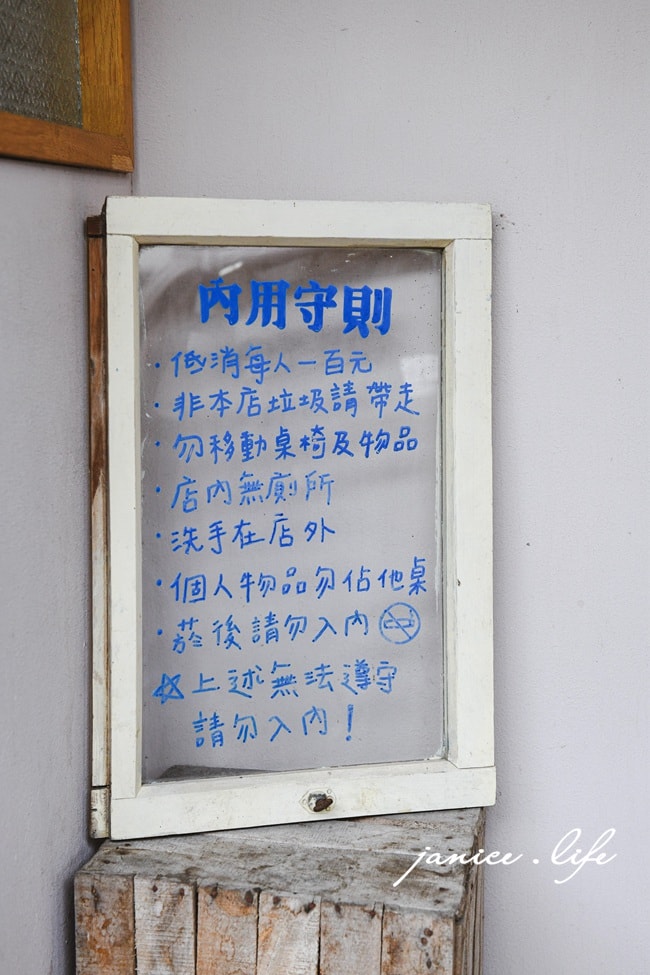 內用守則
·低消每人一百元
·非本店垃圾請帶走
·勿移動桌椅及物品
·店內無廁所
·洗手在店外
·個人物品勿佔他桌
·菸後請勿入內
☆上述無法遵守
請勿入內！
janice.life